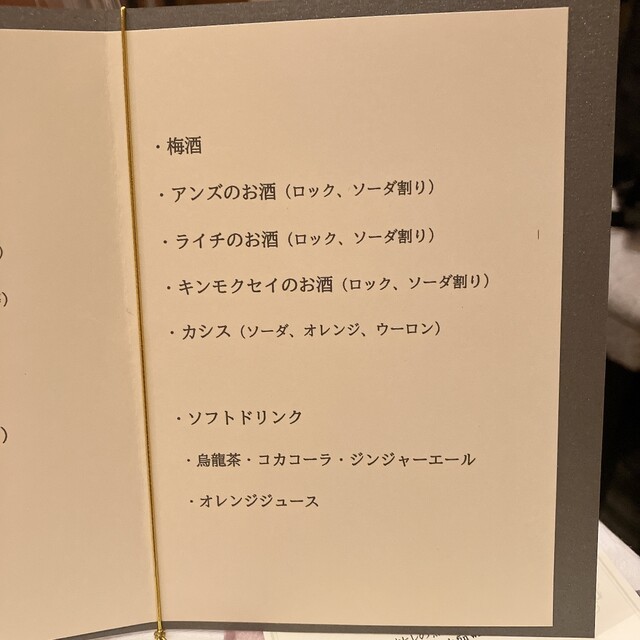 ・梅酒
・アンズのお酒（ロック、ソーダ割り）
・ライチのお酒（ロック、ソーダ割り）
・キンモクセイのお酒（ロック、ソーダ割り）
・カシス（ソーダ、オレンジ、ウーロン）
・ソフトドリンク
・烏龍茶・コカコーラ・ジンジャーエール
・オレンジジュース